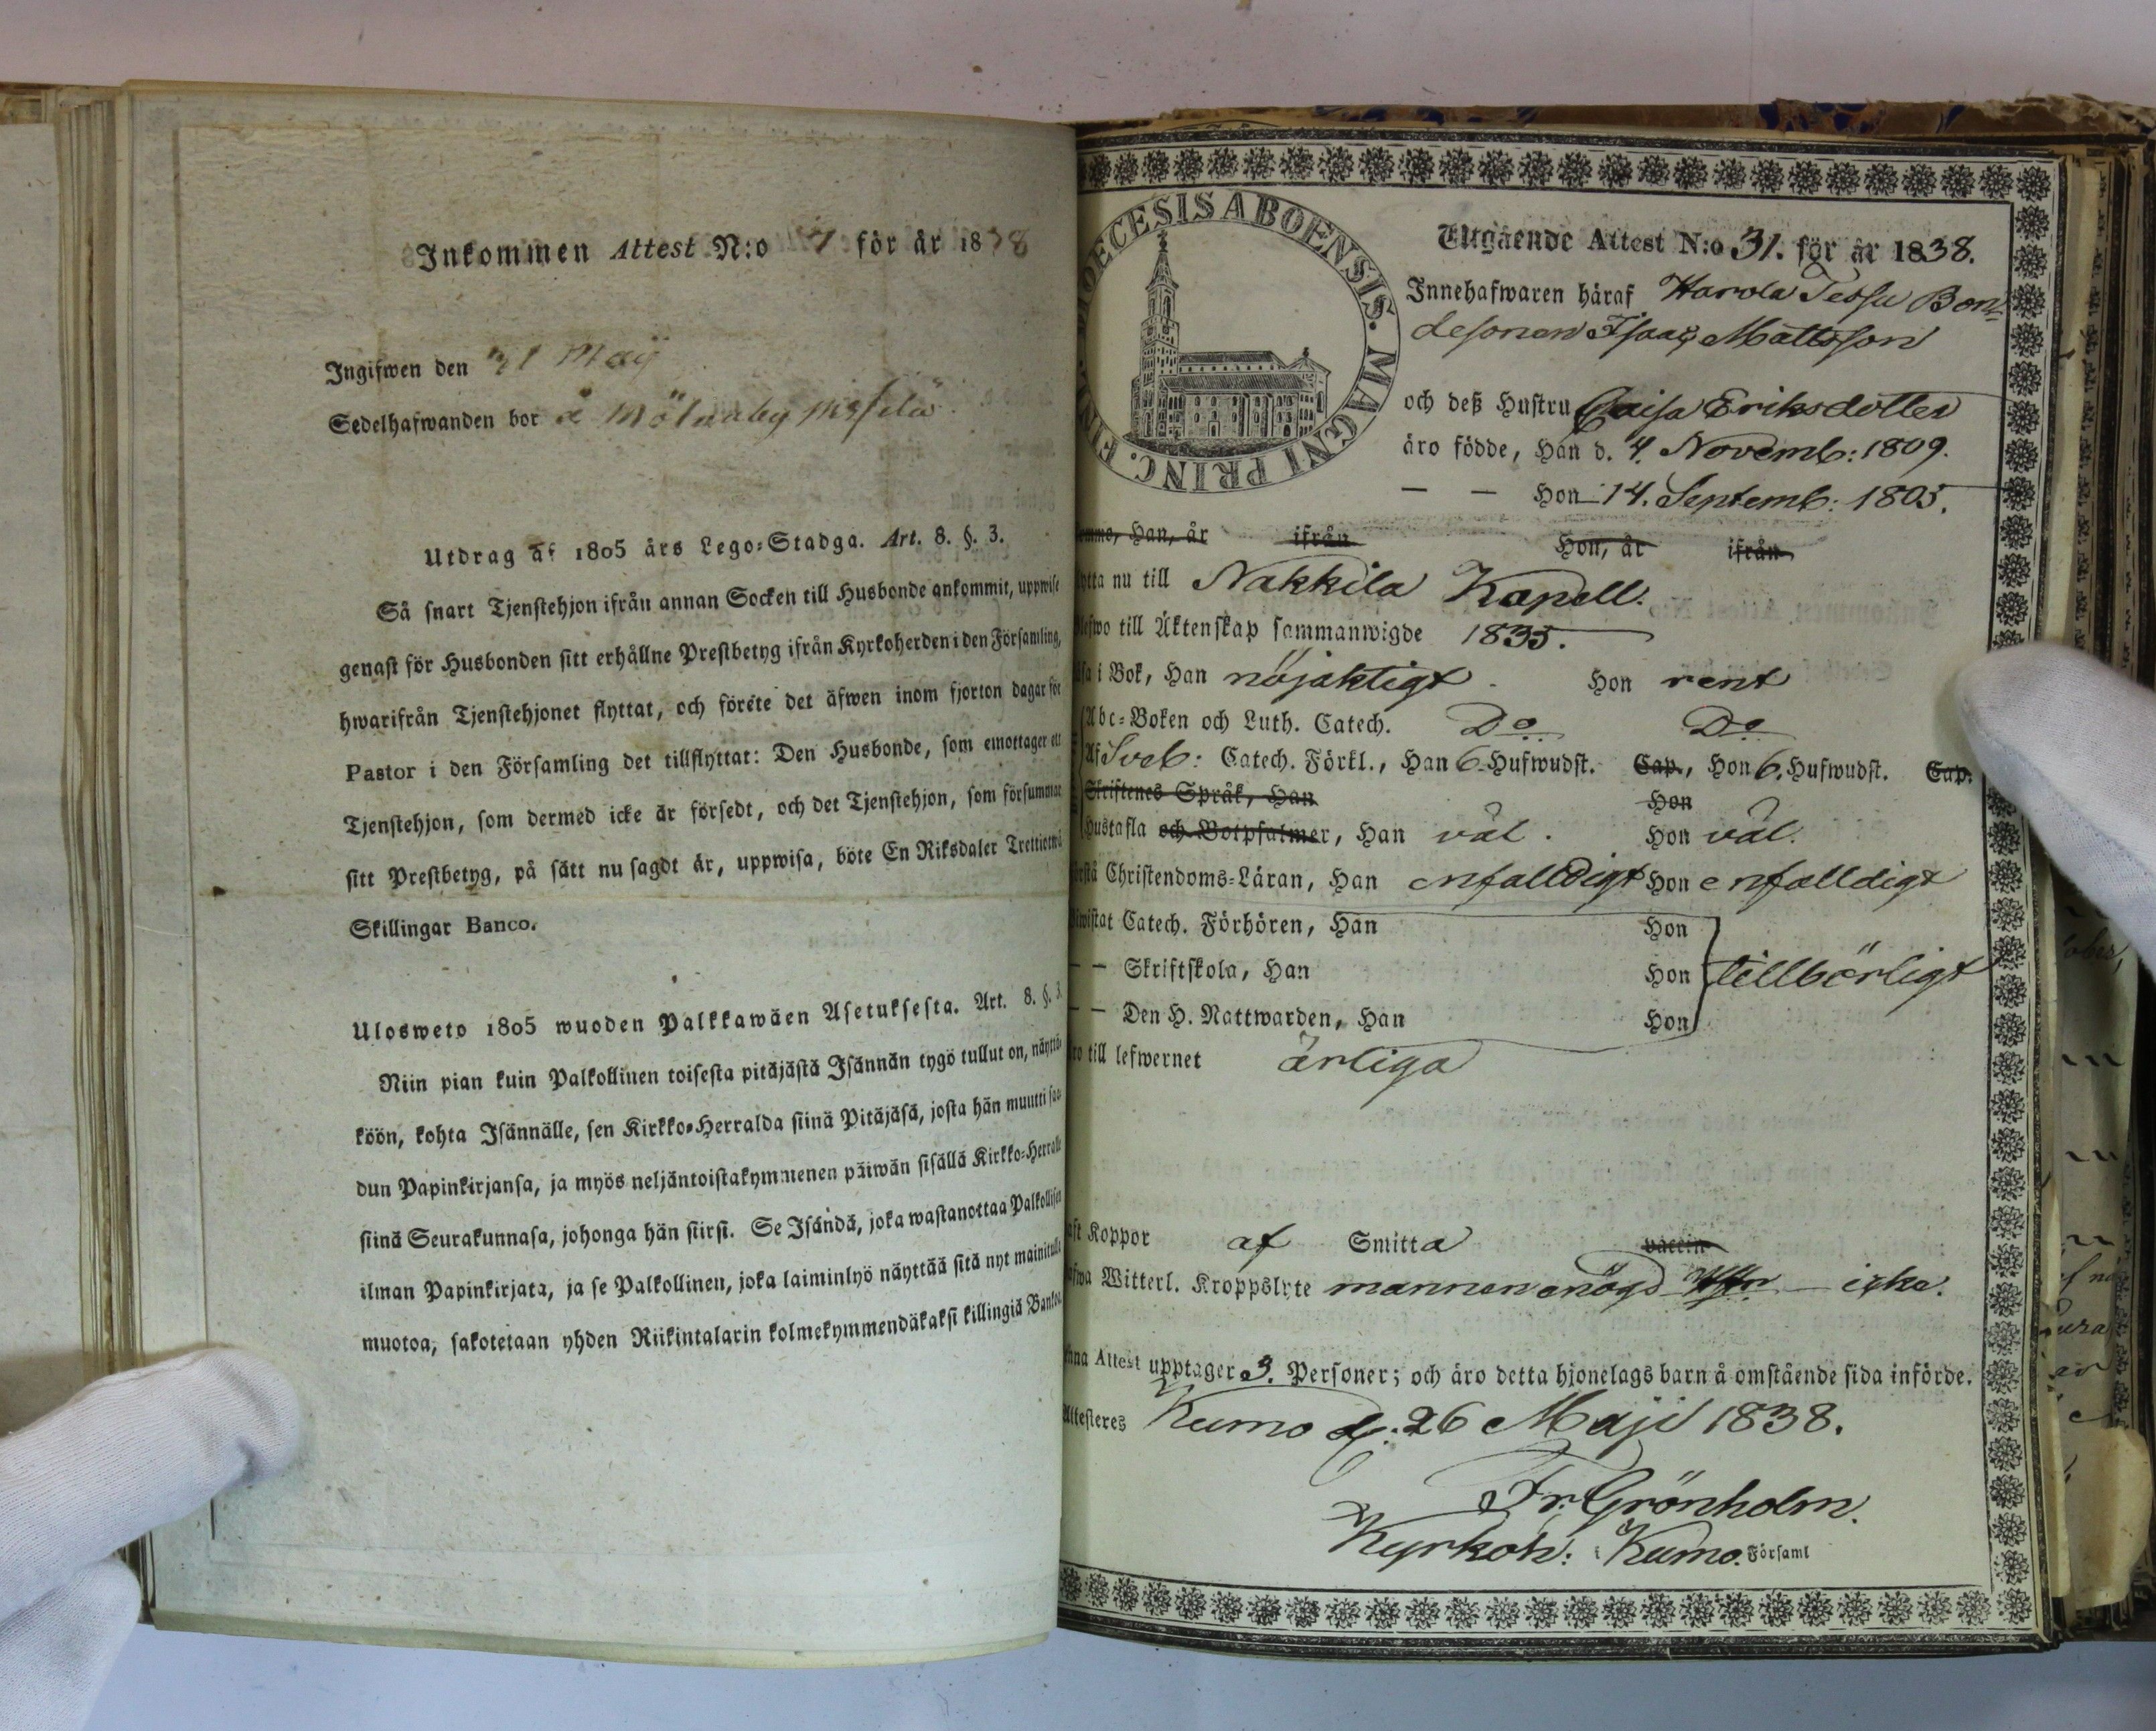 Inkommen Attest N:o 7 för år 1838
Ingifwen den 31 Maij
Sedelhafwanden bor å
Utdrag af 1805 års Lego-Stadga. Art. 8. §. 3.
Så snart Tjenstehjon ifrån annan Socken till Husbonde ankommit, uppwise
genast för Husbonden sitt erhållne Prestbetyg ifrån Kyrkoherden i den Församling,
hwarifrån Tjenstehjonet flyttat, och förete det äfwen inom fjorton dagar för
Pastor i den Församling det tillflyttat: Den Husbonde, som emottager ett
Tjenstehjon, som dermed icke är försedt, och det Tjenstehjon, som försummar
sitt Prestbetyg, på sätt nu sagdt är, uppwisa, böte En Riksdaler Trettiotwå
Skillingar Banco.
Ulosweto 1805 wuoden Palkkawäen Asetuksesta. Art. 8. §. 3.
Niin pian kuin Palkollinen toisesta pitäjästä Isännän tygö tullut on, näyttä-
köön, kohta Isännälle, sen Kirkko-Herralda siinä Pitäjäsä, josta hän muutti saa-
dun Papinkirjansa, ja myös neljäntoistakymmenen päiwän sisällä Kirkko-Herralle
siinä Seurakunnasa, johonga hän siirsi. Se Isändä, joka wastanottaa Palkollisen
ilman Papinkirjata, ja se Palkollinen, joka laiminlyö näyttää sitä nyt mainitulla
muotoa, sakotetaan yhden Riikintalarin kolmekymmendäkaksi killingiä Bankos
DIOECESIS ABOENSIS. MAGNI PRINC. FINL.
Utgående Attest N:o 31. för år 1838.
Innehafwaren häraf Harola Tessu Bon-
desonen Isaac Mattsson
och deß Hustru Caisa Eriksdotter
äro födde, Han d. 4. Novemb: 1809.
— — Hon 14. Septemb: 1805.
komne, Han, år ifrån Hon, år ifrån
flytta nu till Nakkila Kapell.
blefwo till Äktenskap sammanwigde 1835.
läsa i Bok, Han nöjaktigt. Hon rent
Abc-Boken och Luth. Catech. Do Do
Af Sveb: Catech. Förkl., Han 6 Hufwudst. Cap., Hon 6. Hufwudst. Cap.
Skriftenes Språk, Han Hon
Hustafla och Botpsalmer, Han väl. Hon väl.
förstå Christendoms-Läran, Han enfalldigt Hon enfalldigt
biwistat Catech. Förhören, Han Hon
— — Skriftskola, Han Hon tillbörligt
— — Den H. Nattwarden, Han Hon
äro till lefwernet ärliga
haft Koppor af Smitta vaccin
hafwa Witterl. Kroppslyte mannen enögd icke.
Denna Attest upptager 3. Personer; och äro detta hjonelags barn å omstående sida införde.
Attesteres Kumo d: 26 Maji 1838.
Fr. Grönholm.
Kyrkoh: i Kumo. Församl